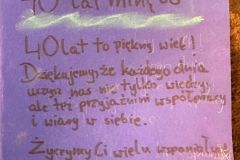 40 lat minęło
40 lat to piękny wiek!
Dziękujemy że każdego dnia
uczysz nas nie tylko wiedzy,
ale też przyjaźni współpracy
i wiary w siebie.
Życzymy Ci wielu wspaniałych